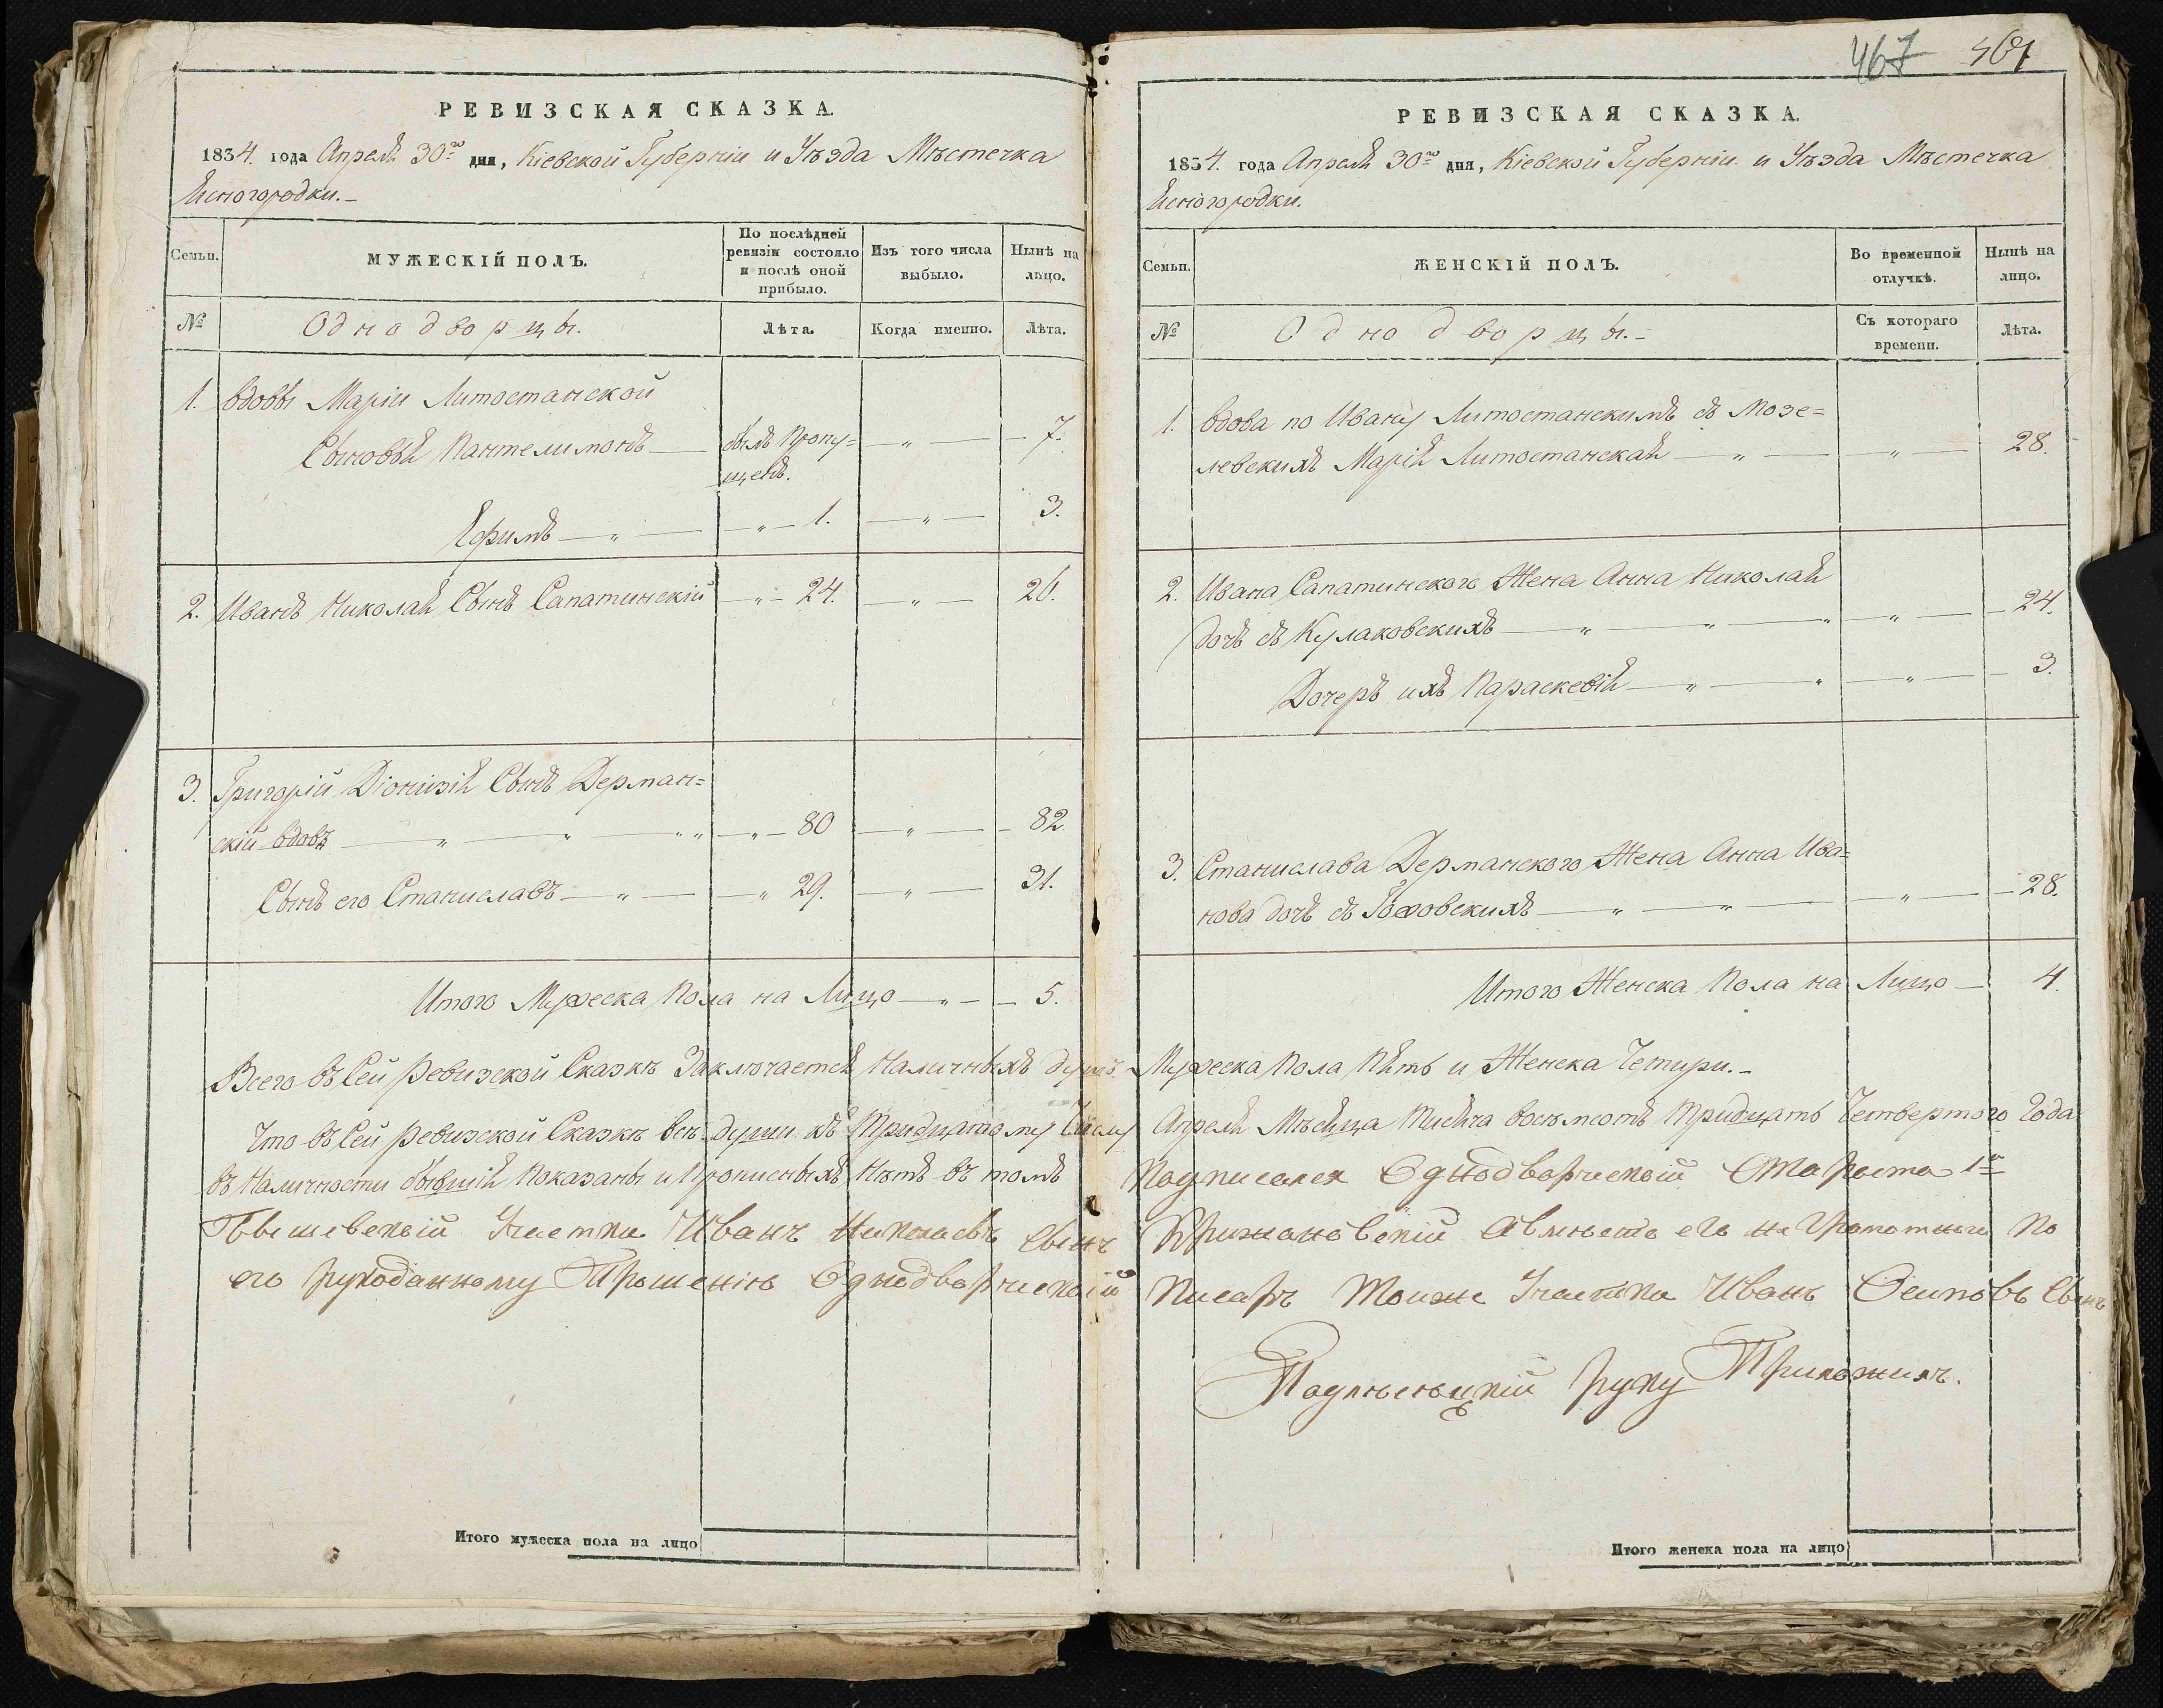 РЕВИЗСКАЯ СКАЗКА.
1834. года Апреля 30го дня, Кіевской Губерніи и Уѣзда Мѣстечка
Ясногородки.
Семьи.
МУЖЕСКІЙ ПОЛЪ.
По послѣдней ревизіи состояло и послѣ оной прибыло.
Изъ того числа выбыло.
Нынѣ на лицо.
№
Однодворцы.
Лѣта.
Когда именно.
Лѣта.
1. Вдовы Маріи Литостанской
Сыновья Пантелимонъ — былъ пропу= — „ — — 7.
щенъ.
Ефимъ — „ — — „ — 1. — „ — 3.
2. Иванъ Николая Сынъ Сапатинскій — „ — 24. — „ — 26.
3. Григорій Діонизія Сынъ Дерман=
скій вдовъ — „ — „ — „ „ — „ — 80 — „ — — 82.
Сынъ его Станиславъ — „ — — „ 29. — „ — 31.
Итого Мужеска Пола на Лицо — „ — — 5.
Всего въ Сей Ревизской Сказкѣ Заключается Наличныхъ душъ
Что въ Сей Ревизской Сказкѣ всѣ души къ Тридцатому Числу
въ Наличности бывшія Показаны и Прописныхъ Нѣтъ въ томъ
Участка Иванъ Николаевъ Сынъ
его рукоданному Прошенію Однодворческій
Итого мужеска пола на лицо
467 461
РЕВИЗСКАЯ СКАЗКА.
1834. года Апреля 30го дня, Кіевской Губерніи и Уѣзда Мѣстечка
Ясногородки.
Семьи.
ЖЕНСКІЙ ПОЛЪ.
Во временной отлучкѣ.
Нынѣ на лицо.
№
Однодворцы.-
Съ котораго времени.
Лѣта.
1. Вдова по Ивану Литостанскимъ съ Мозе=
левскихъ Марія Литостанская — „ — — „ — 28.
2. Ивана Сапатинского Жена Анна Николая
дочъ съ Кулаковскихъ — „ — „ — „ — „ — — 24.
Дочеръ ихъ Параскевія — „ — „ — „ — — 3.
3. Станислава Дерманского Жена Анна Ива=
нова дочъ съ — „ — „ — — „ — — 28.
Итого Женска Пола на Лицо — 4.
Мужеска Пола Пять и Женска Четири.-
Апреля Мѣсяца Тисяча восѣмсотъ Тридцать Четвертого Года
Подписался Однодворческій Староста 1го
Крижановскій Авмѣсто его не Грамотного По
Писарь Тоиже Участка Иванъ Осиповъ Сынъ
руку Приложилъ.
Итого женска пола на лицо